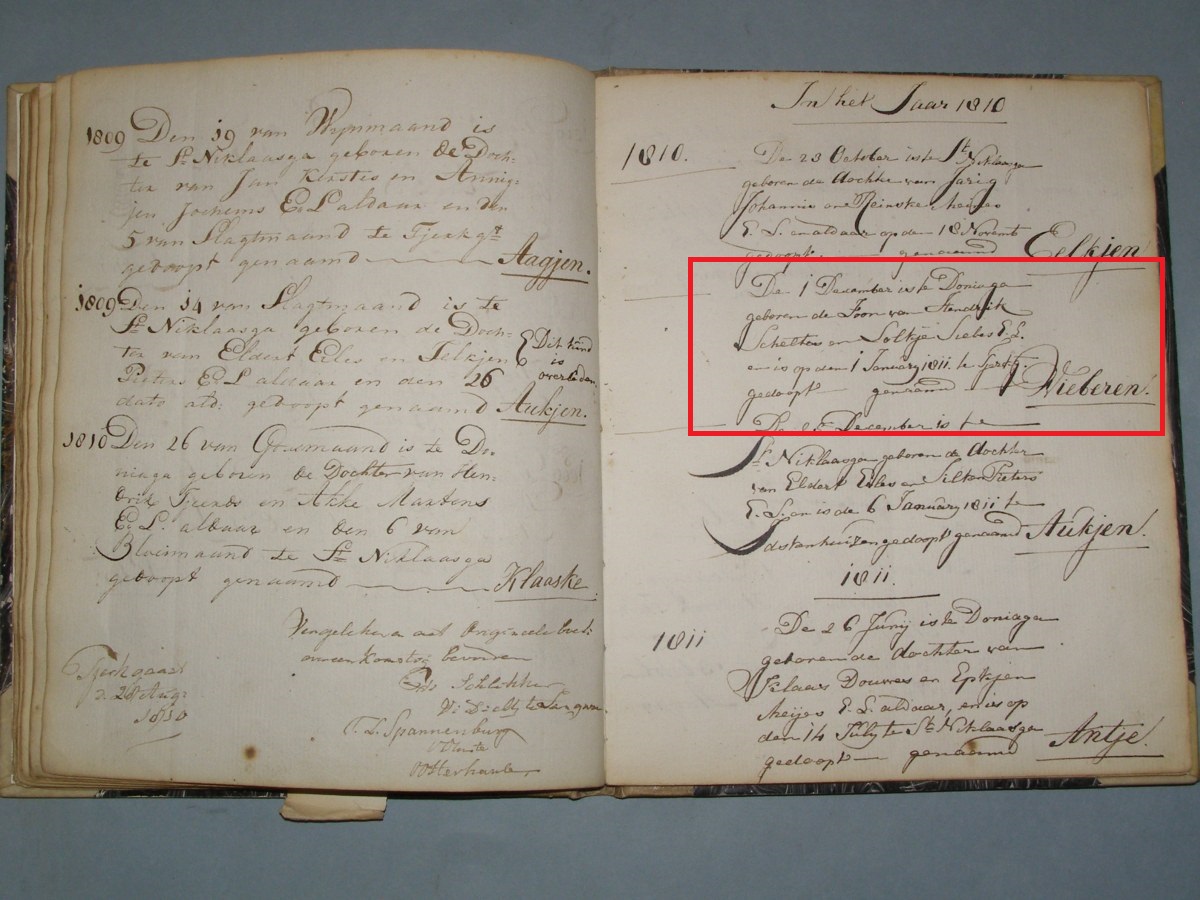 1809 Den 19 van Wijnmaand is
te St. Niklaasga geboren de Doch-
ter van Jan Klases en Annig-
jen Jochems E. L. aldaar en den
5 van Slagtmaand te Tjerkgt.
gedoopt genaamd Aagjen.
1809 Den 14 van Slagtmaand is te
St. Niklaasga geboren de Doch-
ter van Eldert Eeles en Jelkjen
Dit kind
is
overleden
Pieters E. L. aldaar en den 26
dato ald: gedoopt genaamd Aukjen.
1810 Den 26 van Grasmaand is te Do-
niaga geboren de Dochter van Hen-
drik Tjeerds en Akke Martens
E. L. aldaar en den 6 van
Bloeimaand te St. Niklaasga
gedoopt genaamd Klaaske
Vergeleken met Origineele
overeenkomstig bevonden
Tjerkgaast
28 Aug:
1810
T. L. Spannenburg
In het Jaar 1810
1810. De 23 October is te St. Niklaasga
geboren de dochter van Jarig
Johannis en Reinske
E. L. en aldaar op den 18 Novemb
gedoopt genaamd Eelkjen
De 1 December is te Doniaga
geboren de Zoon van Hendrik
Scheltes en Soltje Siebes E. L.
en is op den 1 January 1811 te
gedoopt genaamd Wieberen.
De December is te
St. Niklaasga geboren de dochter
van Eldert Eeles en Pieters
E. L. en is de 6 January 1811 te
Idskenhuizen gedoopt genaamd Aukjen.
1811.
1811 De 26 Junij is te Doniaga
geboren de dochter van
Klaas Douwes en Epkjen
Heijes E. L. aldaar, en is op
den 14 July te St. Niklaasga
gedoopt genaamd Antje.